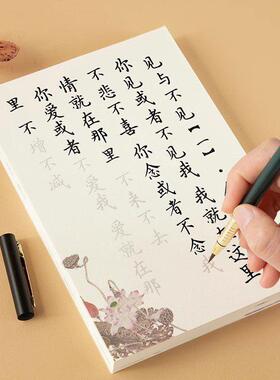 见与不见【一】·
你见或者不见我 我就在这里
不悲不喜 你念或者不念我
情就在那里 不来不去
你爱或者不爱我 爱就在那
里 不增不减